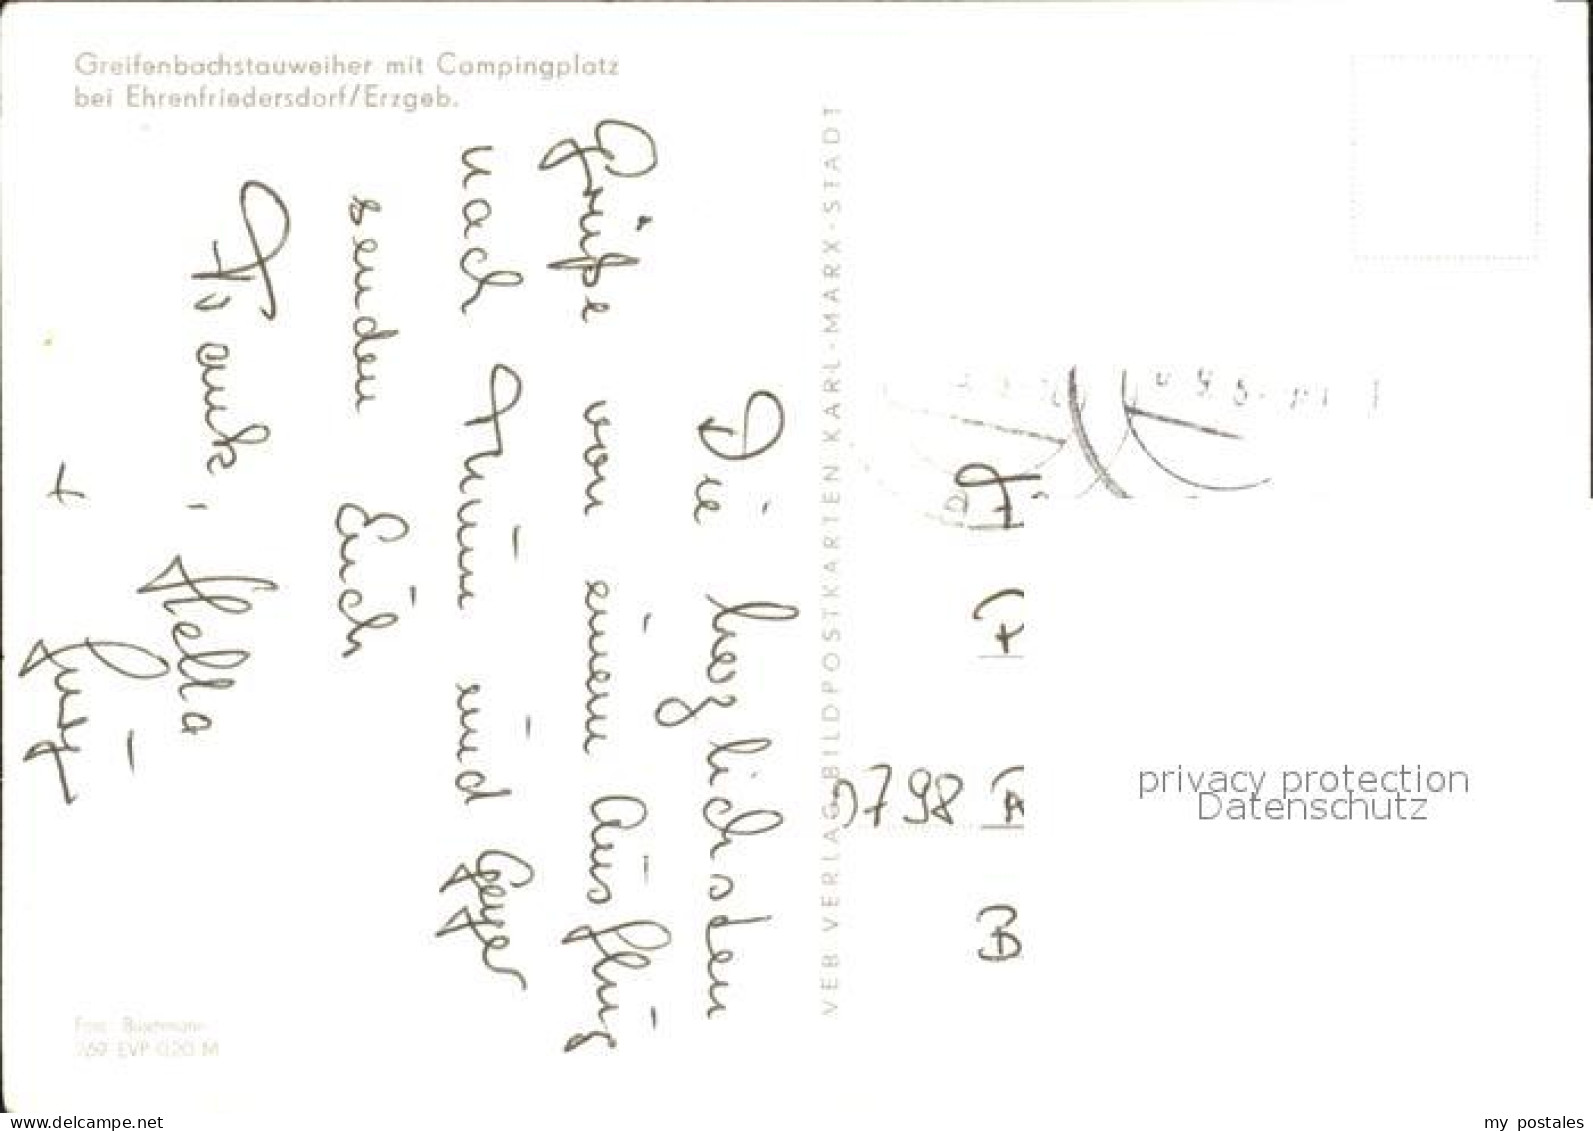 Greifenbachstauweiher mit Campingplatz
bei Ehrenfriedersdorf/Erzgeb.
Die herzlichsten
Grüße von einem Ausflug
nach Thum und Geyer
senden Euch
Frank, Hella
+ Jutz
VEB VERLAG BILDPOSTKARTEN KARL-MARX-STADT
9798
B
privacy protection
Datenschutz
Foto: Buschmann
769 EVP 0,20 M
www.delcampe.net
my_postales